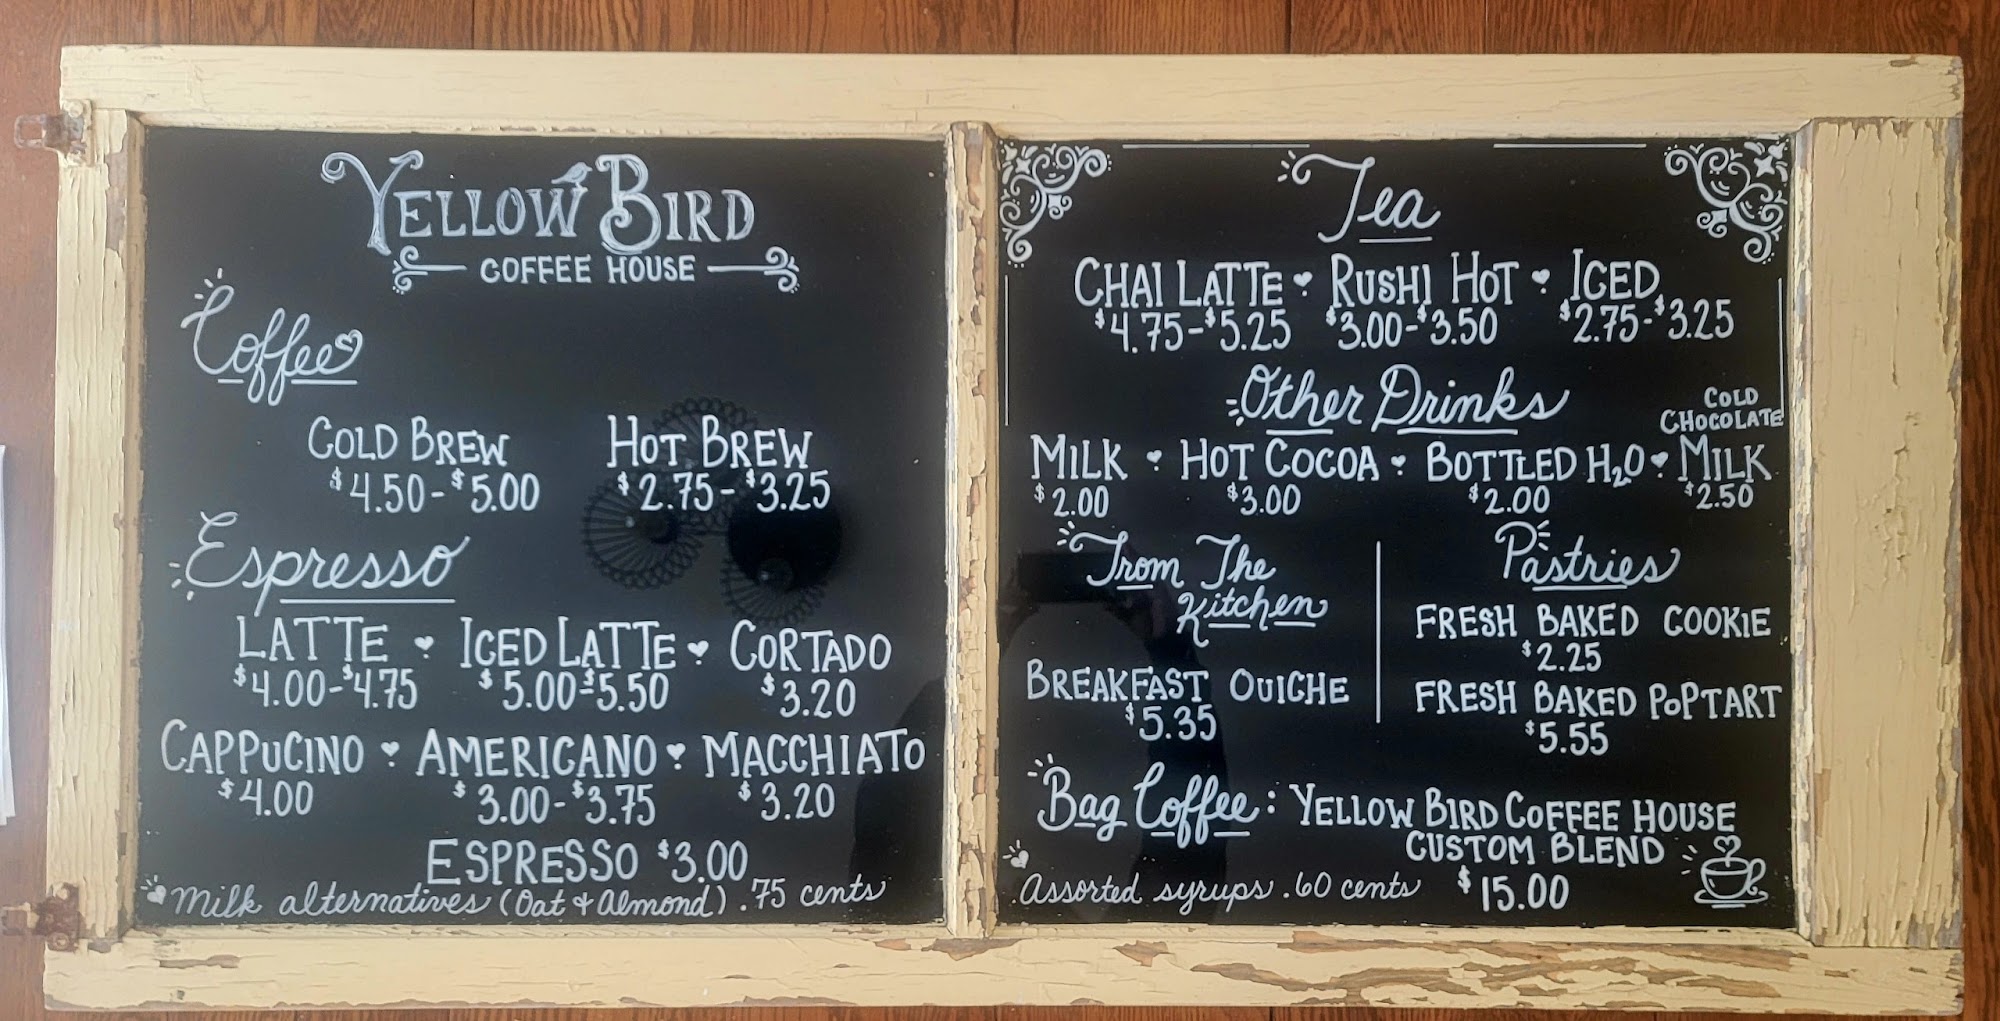 YELLOW BIRD
COFFEE HOUSE
Coffee
COLD BREW HOT BREW
$4.50-$5.00 $2.75-$3.25
Espresso
LATTE ICED LATTE CORTADO
$4.00-$4.75 $5.00-$5.50 $3.20
CAPPUCINO AMERICANO MACCHIATO
$4.00 $3.00-$3.75 $3.20
ESPRESSO $3.00
Milk alternatives (Oat & Almond) .75 cents
Tea
CHAI LATTE RUSHI HOT ICED
$4.75-$5.25 $3.00-$3.50 $2.75-$3.25
Other Drinks
COLD
CHOCOLATE
MILK HOT COCOA BOTTLED H2O MILK
$2.00 $3.00 $2.00 $2.50
From The
Kitchen
BREAKFAST QUICHE
$5.35
Pastries
FRESH BAKED COOKIE
$2.25
FRESH BAKED POPTART
$5.55
Bag Coffee: YELLOW BIRD COFFEE HOUSE
CUSTOM BLEND
$15.00
Assorted syrups .60 cents